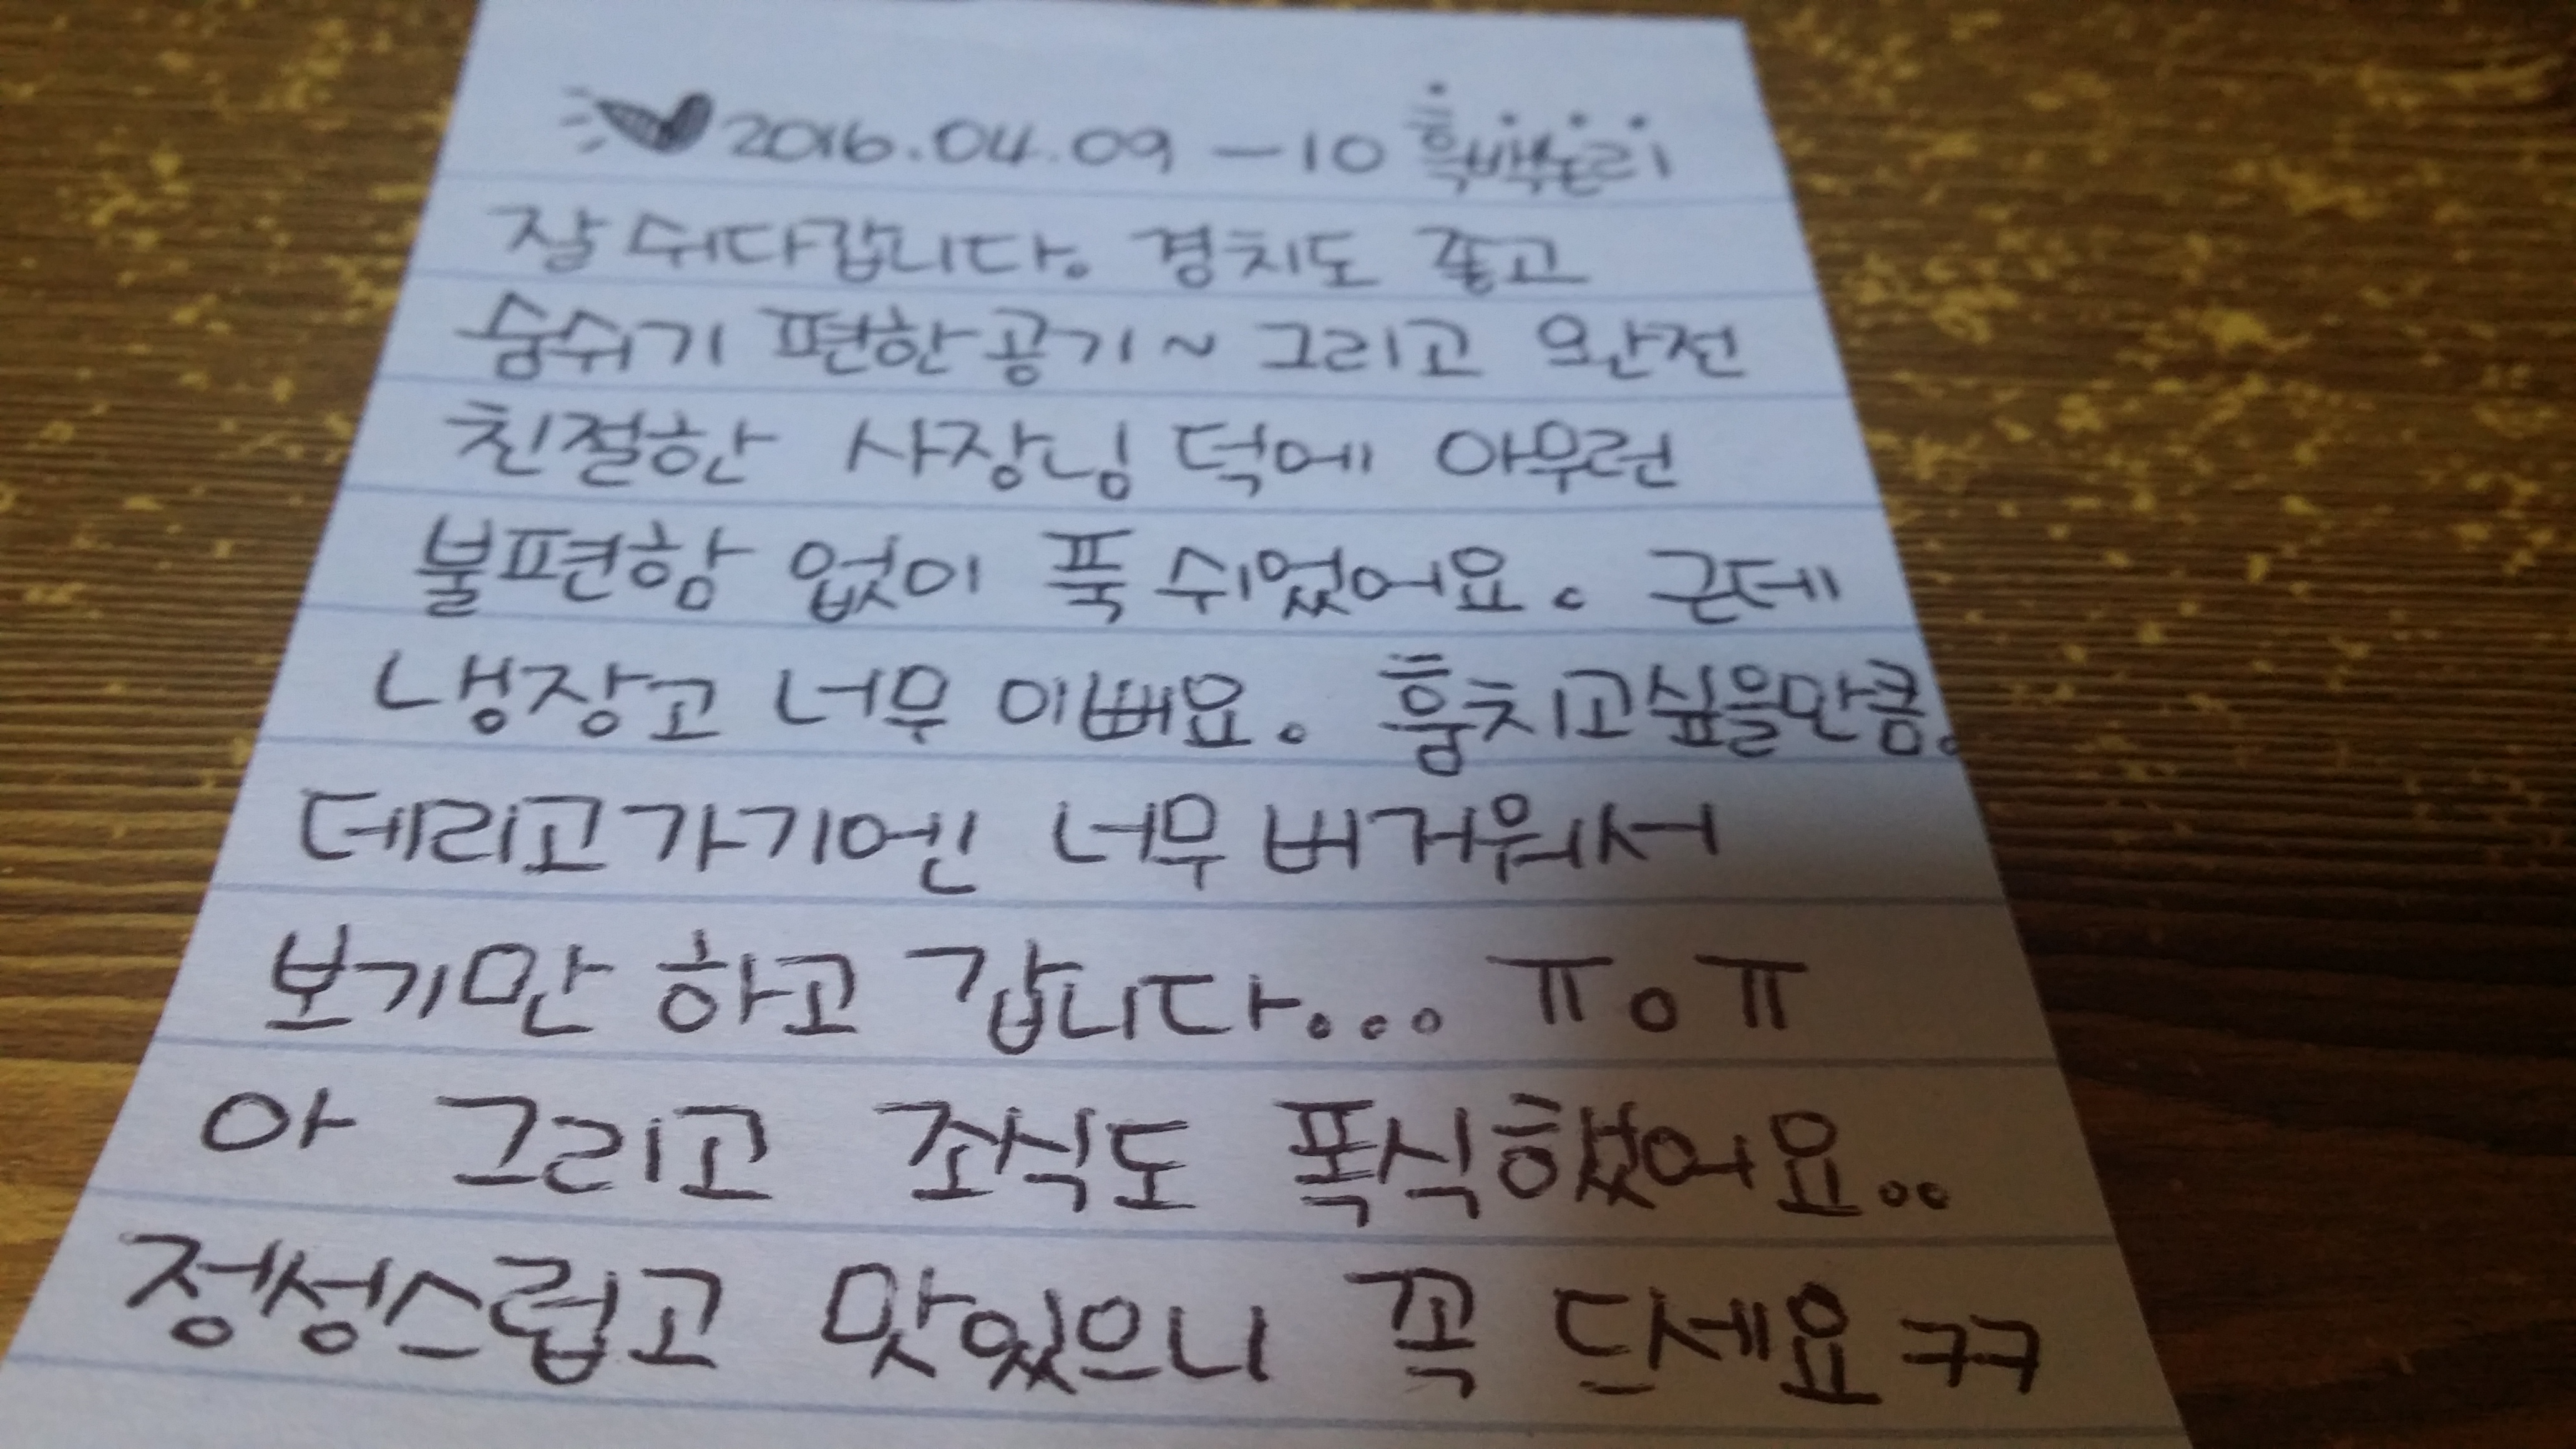 ♥2016.04.09 -10 흑백논리
잘 쉬다갑니다. 경치도 좋고
숨쉬기 편한공기~ 그리고 완전
친절한 사장님 덕에 아무런
불편함 없이 푹 쉬었어요. 근데
냉장고 너무 이뻐요. 훔치고싶을만큼.
데리고가기엔 너무 버거워서
보기만 하고 갑니다... ㅠㅇㅠ
아 그리고 조식도 폭식했어요..
정성스럽고 맛있으니 꼭 드세요ㅋㅋ